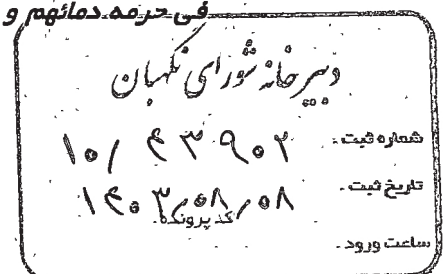 فی حرمه دمائهم و
دبیرخانه شورای نگهبان
شماره ثبت - ۱۰/ ۴۳۹۰۲
تاریخ ثبت - ۱۴۰۳/۰۸/۰۸
کد پرونده -
ساعت ورود -